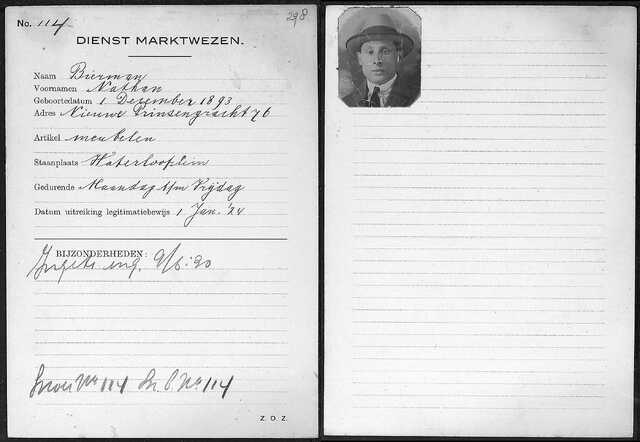 No. 114
298
DIENST MARKTWEZEN.
Naam Bierman
Voornamen Nathan
Geboortedatum 1 December 1893
Adres Nieuwe Prinsengracht 76
Artikel meubelen
Staanplaats Waterlooplein
Gedurende Maandag t/m Vrijdag
Datum uitreiking legitimatiebewijs 1 Jan. '24
BIJZONDERHEDEN:
No 114 No 114
Z. O. Z.